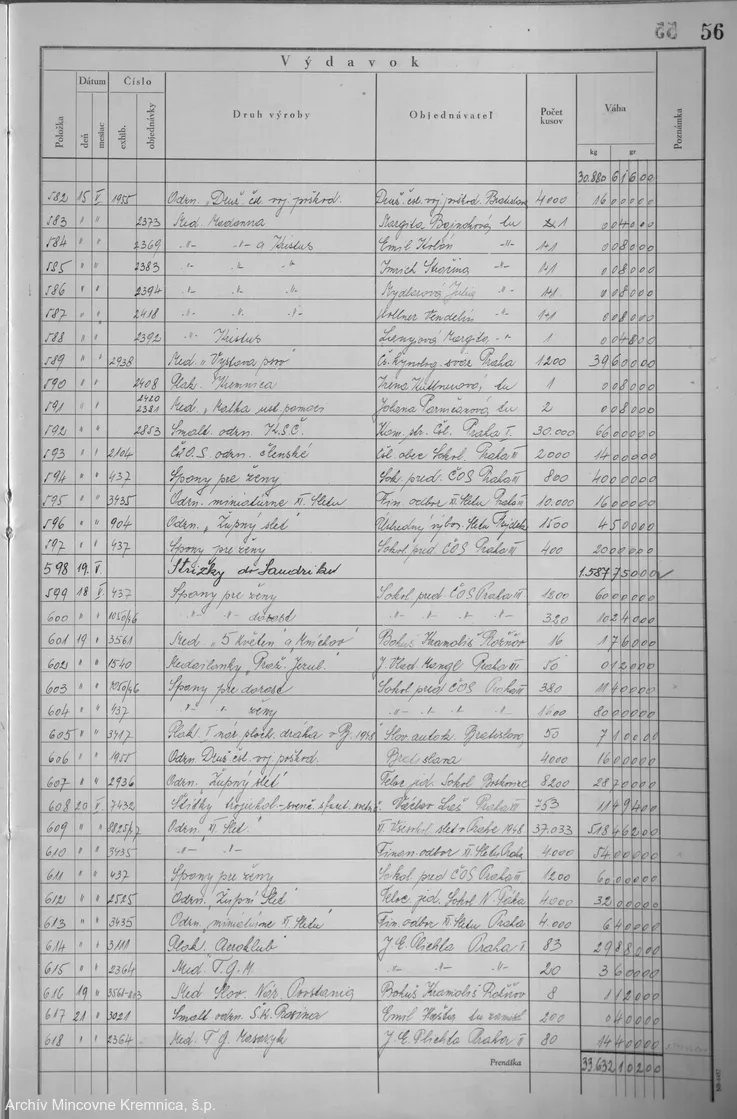 55 56
Výdavok
Položka Dátum deň mesiac Číslo exhib. objednávky Druh výroby Objednávateľ Počet kusov Váha kg gr Poznámka
30.880 61600
582 15 V. 1955 Odzn. "Druž. čsl. voj. poškod. Druž. čsl. voj. poškod. Bratislava 4000 16 00000
583 " " 2373 Med. Madonna Margita tu 1 0 04000
584 " " 2369 -"- -"- a Kristus Emil -"- 1+1 0 08000
585 " " 2383 -"- -"- -"- Imrich -"- 1+1 0 08000
586 " " 2394 -"- -"- -"- Júlia -"- 1+1 0 08000
587 " " 2418 -"- -"- -"- Vendelín -"- 1+1 0 08000
588 " " 2392 -"- Kristus Margita -"- 1 0 04800
589 " " 2938 Med. "Výstava psov" Čs. Kynolog. svaz Praha 1200 39 60000
590 " " 2408 Plak. Kremnica Irena tu 1 0 08000
591 " " 2420 2381 Med. "Matka ust. pomoci tu 2 0 08000
592 " " 2853 Smalt. odzn. K.S.Č. Kom. str. Čsl. Praha I. 30.000 66 00000
593 " " 2104 Č.O.S. odzn. členské Čsl. obec Sokol Praha III 2000 14 00000
594 " " 437 Spony pre ženy Sok. pred. ČOS Praha III 800 40 00000
595 " " 3435 Odzn. miniatúrne XI. Sletu Fin. odbor XI. Sletu Praha III 10.000 16 00000
596 " " 904 Odzn. "Župný slet" Ústredný výbor Sletu 1500 4 50000
597 " " 437 Spony pre ženy Sokol pred. ČOS Praha III 400 20 00000
598 19. V. Strižky do Sandriku 1.587 75000 ✓
599 18 V. " 437 Spony pre ženy Sokol pred ČOS Praha III 1200 60 00000
600 " " 1050/46 -"- -"- dorast -"- -"- -"- -"- 320 10 24000
601 19 " 3561 Med. "5 Květen" a "Mníchov" Bohuš Kramoliš Rožňov 16 1 76000
602 " " 1540 Medailonky "Praž. Jezul." J. Praha III 50 0 12000
603 " " 1050/46 Spony pre dorast Sokol pred ČOS Praha III 380 11 40000
604 " " 437 " " ženy -"- -"- -"- -"- 1600 80 00000
605 " " 3417 Plak. I nár. ploch. dráha v Bj. 1948 Slov. autok. Bratislava 50 7 10000
606 " " 1955 Odzn. Druž. čsl. voj. poškod. Bratislava 4000 16 00000
607 " " 2936 Odzn. "Župný slet" Teloc. jed. Sokol Boskovice 8200 28 70000
608 20 V. 7432 Štítky Václav Praha III 753 11 49400
609 " " Odzn. "XI Slet." XI. Všesokol. slet v Prahe 1948 37.033 518 46200
610 " " 3435 -"- -"- Finan. odbor XI. Sletu Praha 4000 54 00000
611 " " 437 Spony pre ženy Sokol pred ČOS Praha III 1200 60 00000
612 " " 2525 Odzn. "Župní Slet" Teloc. jed. Sokol N. Paka 4.000 32 00000
613 " " 3435 Odzn. "miniatúrne XI. Sletu" Fin. odbor XI. Sletu Praha 4.000 6 40000
614 " " 3111 Plak. "Aeroklub" J. E. Plichta Praha I 83 29 88000
615 " " 2364 Med. T. G. M. -"- -"- -"- 20 3 60000
616 19 " Med. Slov. Nár. Povstania Bohuš Kramoliš Rožňov 8 1 12000
617 21 " 3021 Smalt. odzn. Emil tu 200 0 40000
618 " " 2364 Med. T. G. Masaryk J. E. Plichta Praha I 80 14 40000
Prenáška 33.632 10200
Archív Mincovne Kremnica, š.p.